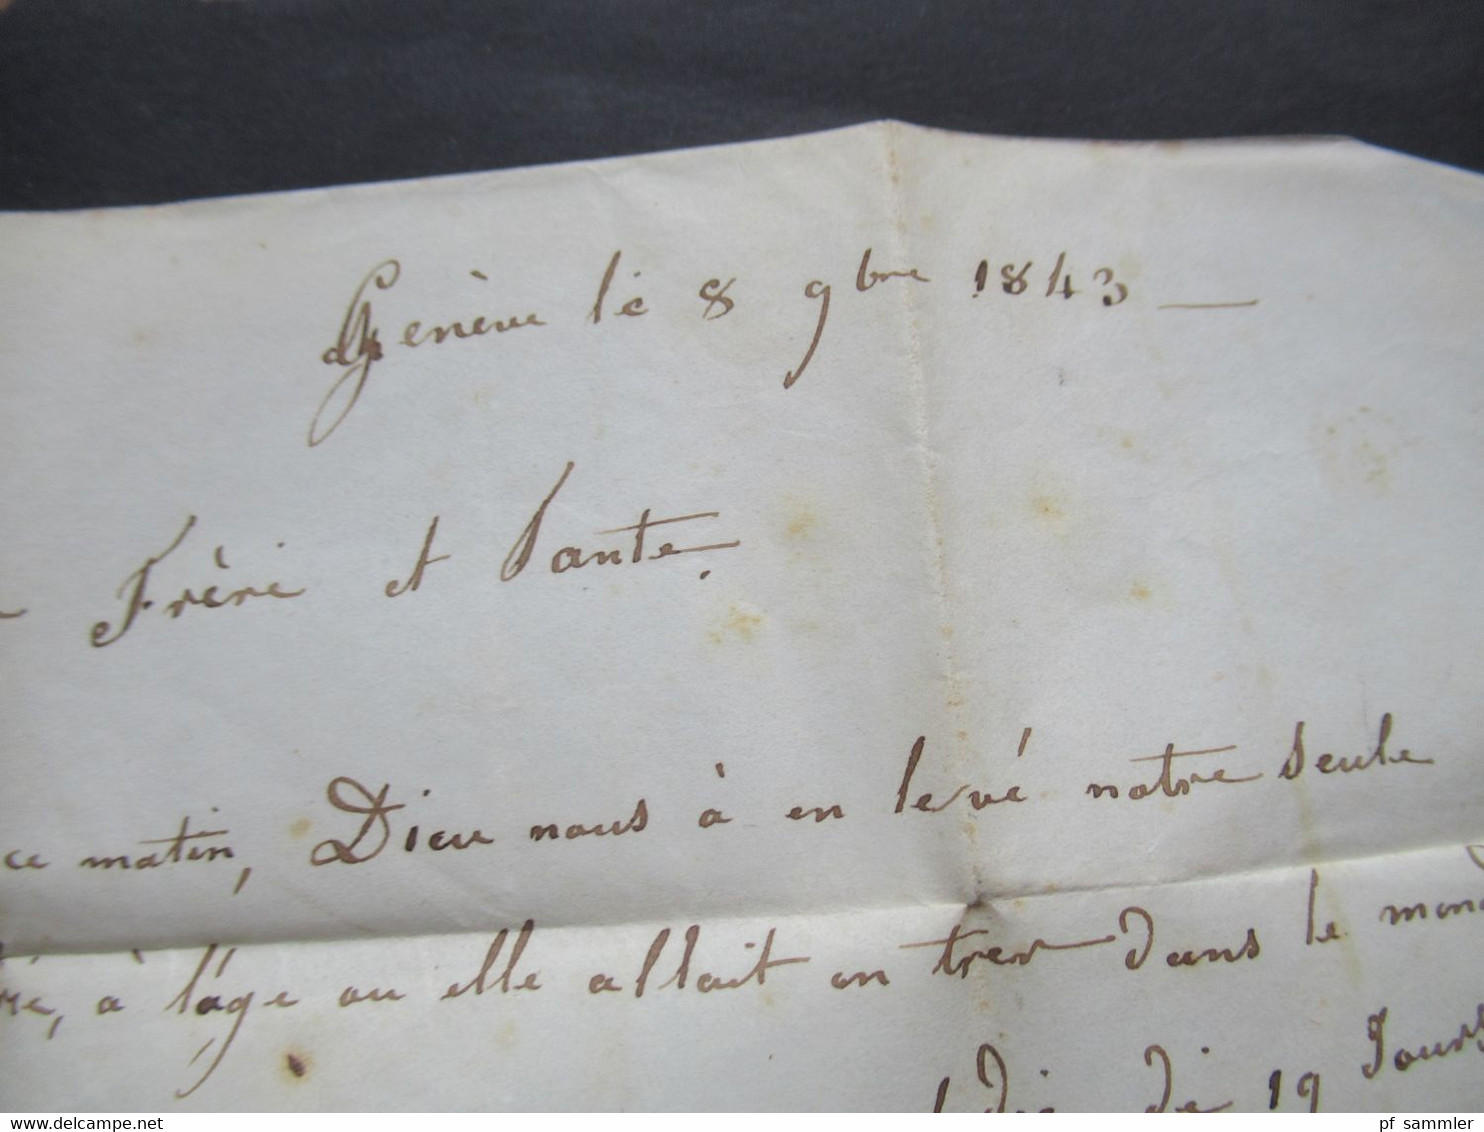 Genève le 8 9bre 1843 —
Frère et Tante.
ce matin, Dieu nous à en levé notre seule
à l'age ou elle allait en trer dans le
de 19 Jours
pf sammler